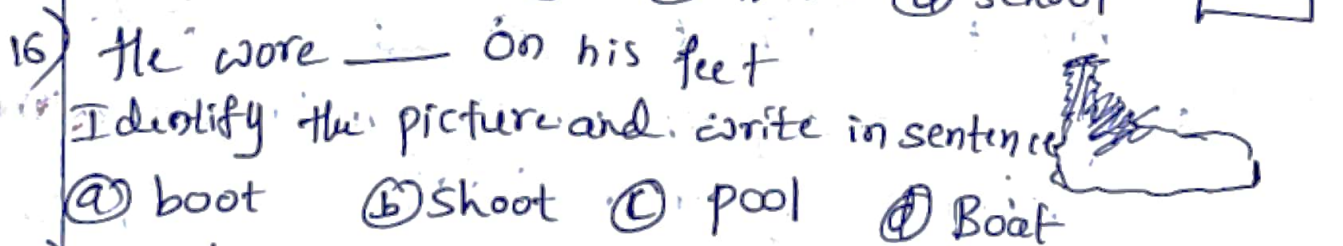 16) He wore ___ on his feet
Identify the picture and write in sentence
ⓐ boot ⓑ shoot ⓒ pool ⓓ Boat